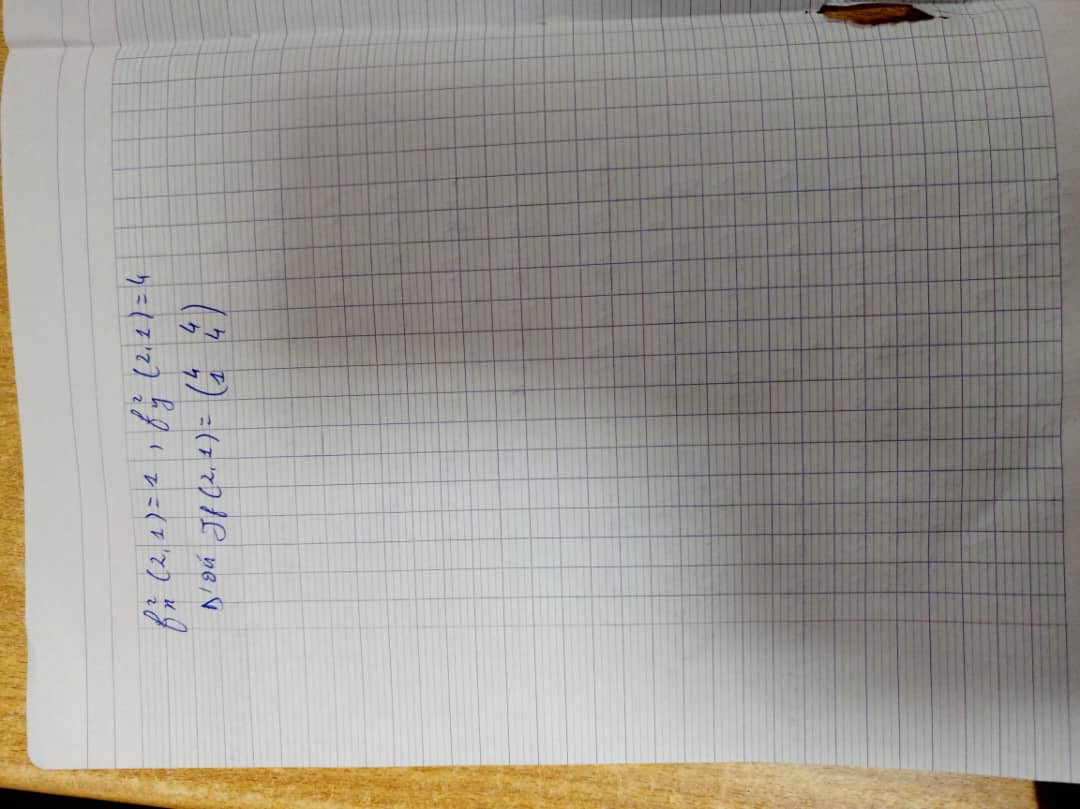 f²ₓ(2,1)=1, f²ᵧ(2,1)=4
D'où Jf(2,1)= (4 4
1 4)